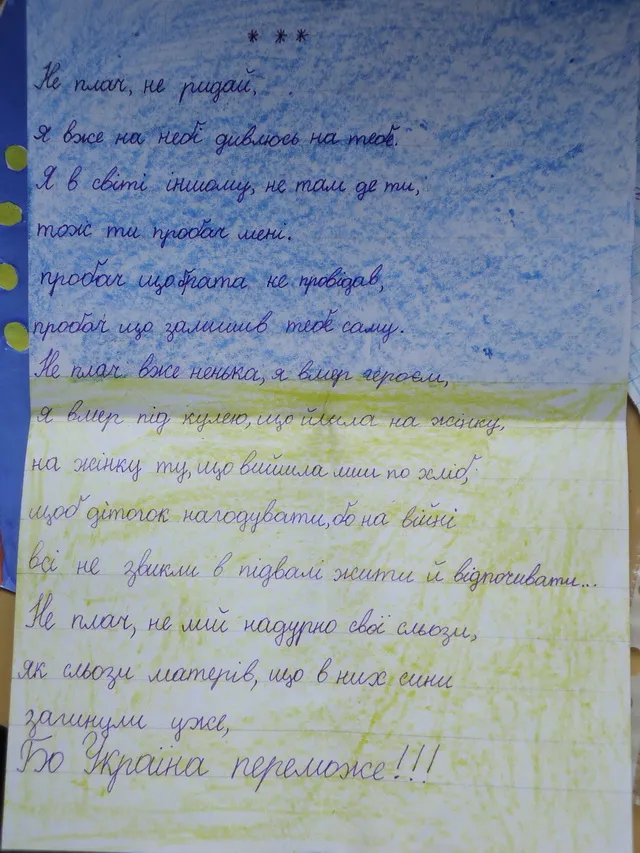 * * *
Не плач, не ридай,
я вже на небі дивлюсь на тебе.
Я в світі іншому, не там де ти,
тож ти пробач мені.
пробач що брата не провідав,
пробач що залишив тебе саму.
Не плач вже ненька, я вмер героєм,
я вмер під кулею, що йшла на жінку,
на жінку ту, що вийшла лиш по хліб,
щоб діточок нагодувати, бо на війні
всі не звикли в підвалі жити й відпочивати...
Не плач, не лий надурно свої сльози,
як сльози матерів, що в них сини
загинули уже,
Бо Україна переможе!!!